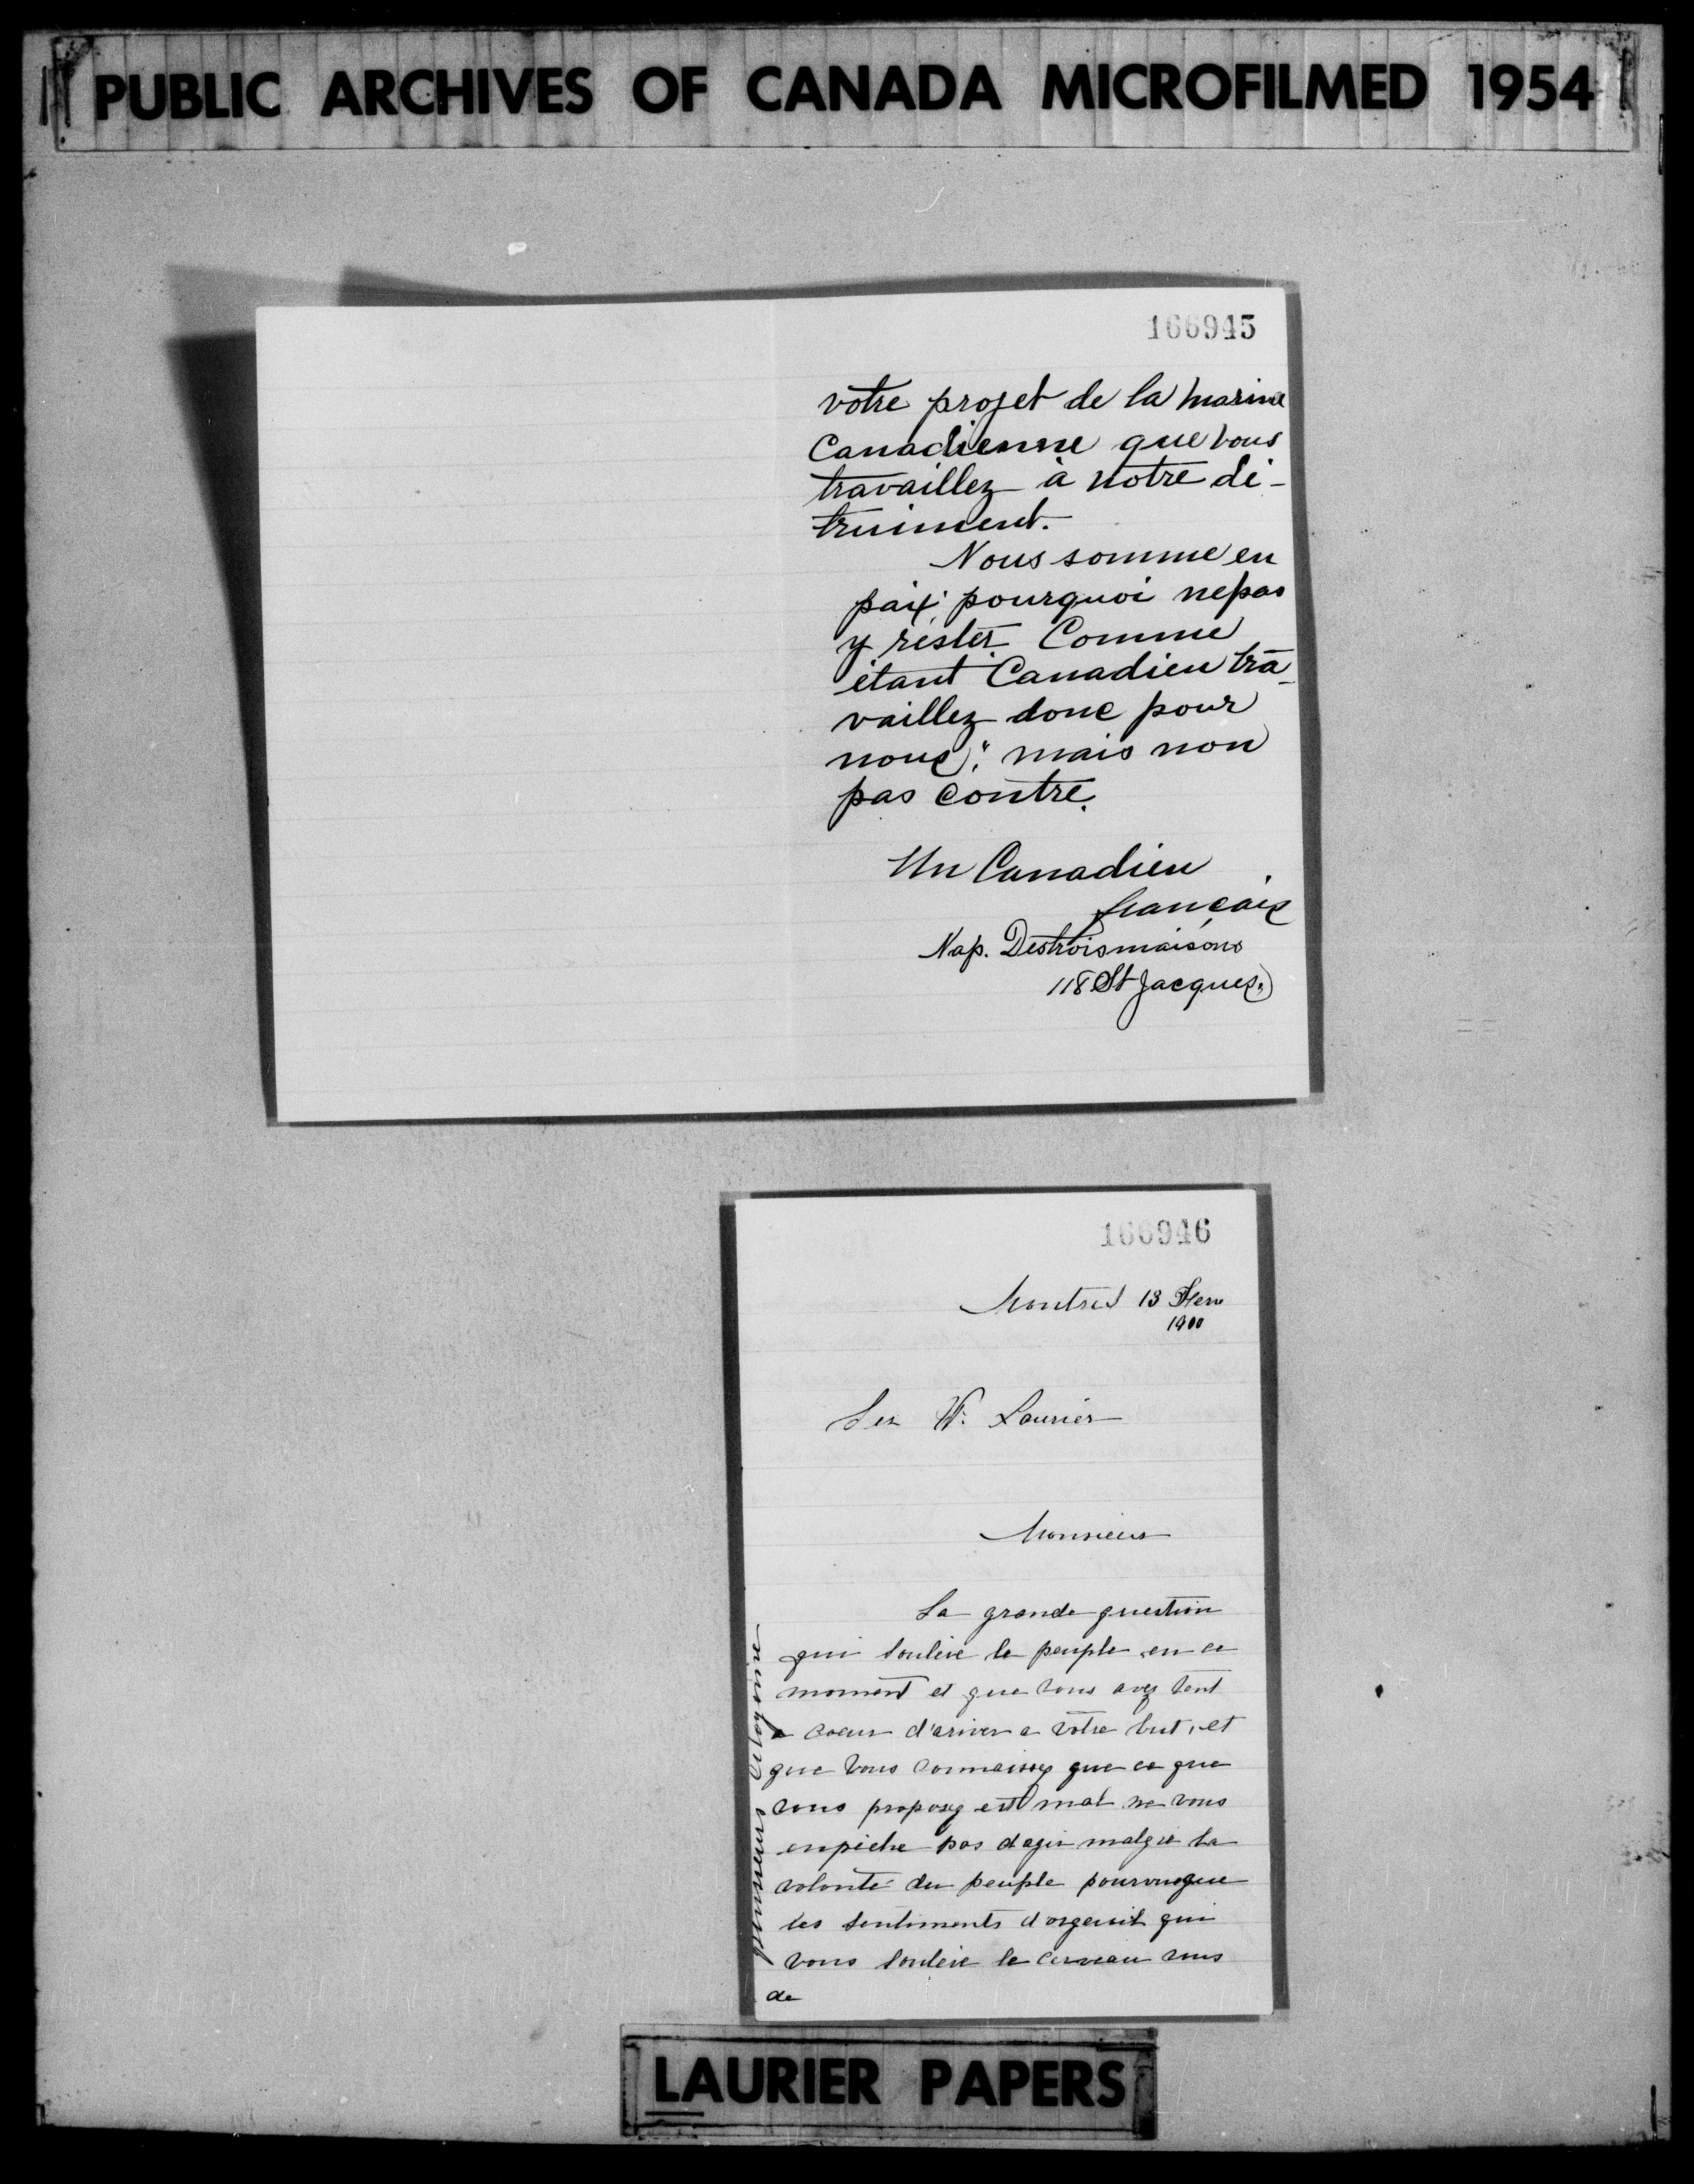 PUBLIC ARCHIVES OF CANADA MICROFILMED 1954
166945
votre projet de la marine
Canadienne que vous
travaillez à notre dé-
truiment.
Nous somme en
paix pourquoi ne pas
y rester Comme
étant Canadien tra-
vaillez donc pour
nous; mais non
pas contre.
Un Canadien
français
Nap. Destroismaisons
118 St Jacques.
166946
Montreal 13
Ser W. Laurier
Monsieur
La grande question
qui soulève le peuple en ce
moment et que vous avez tent
a coeur d'ariver a votre but, et
que vous connaissez que ce que
vous proposez est mal ne vous
enpèche pas d'agir malgré la
volonté du peuple pourvu que
les sentiments d'orgeuil qui
vous soulève le cerveau vous
de
LAURIER PAPERS